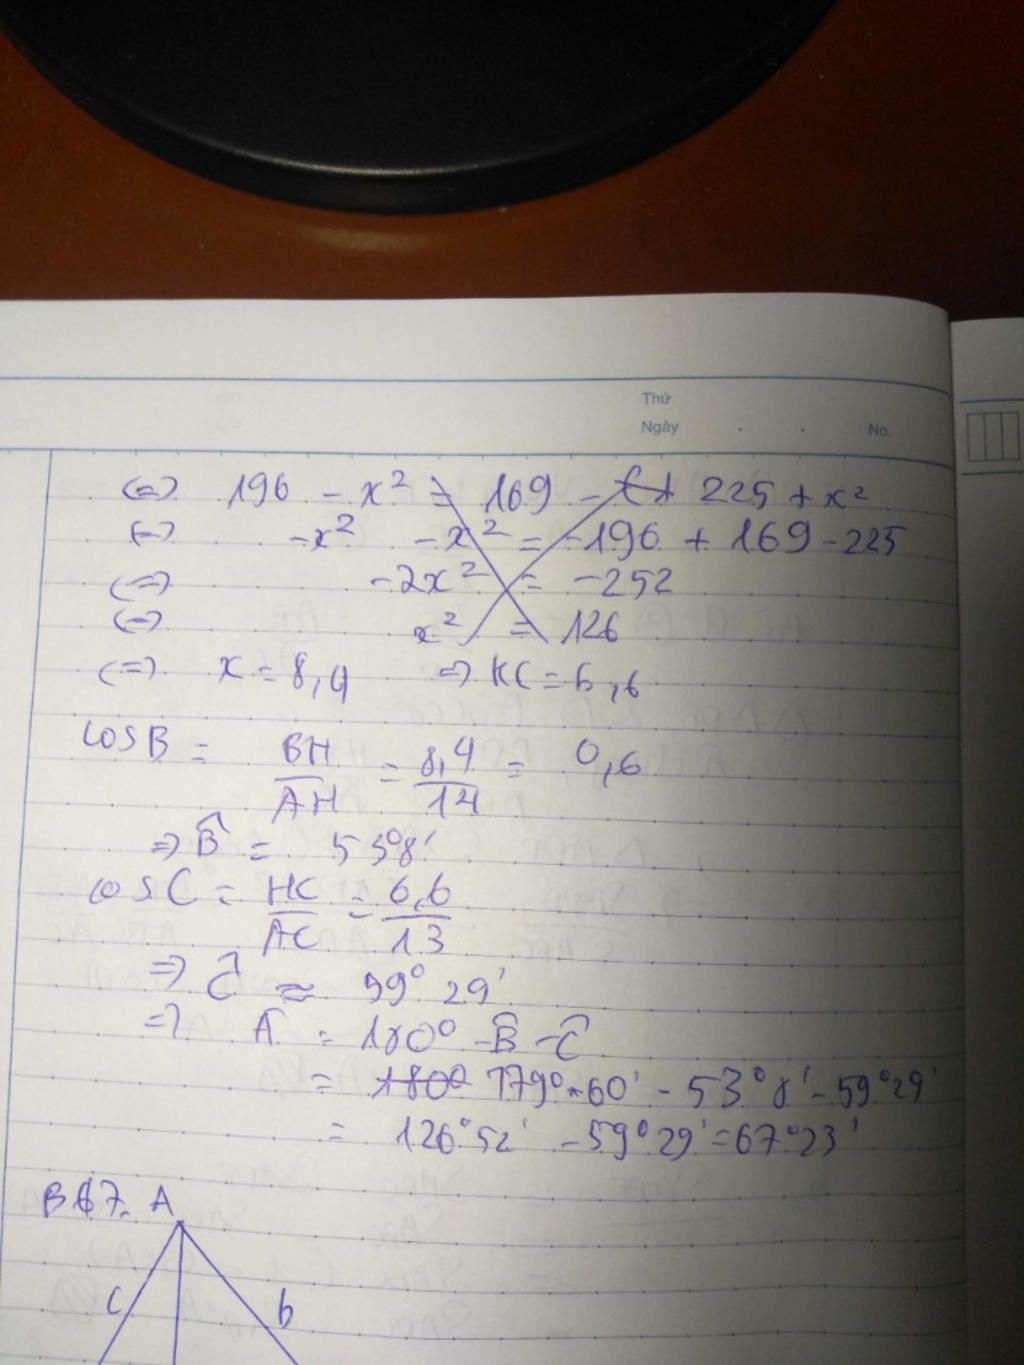 Thứ
Ngày . . No.
(=) 196 - x² = 169 - 225 + x²
(=) -x² - x² = -196 + 169 - 225
(=) -2x² = -252
(=) x² = 126
(=) x = 8,4 => KC = 6,6
cosB = BH/AH = 8,4/14 = 0,6
=> B̂ = 53°8'
cosC = HC/AC = 6,6/13
=> Ĉ ≈ 59° 29'
=> Â = 180° - B̂ - Ĉ
= 180° 179° 60' - 53°8' - 59°29'
= 126°52' - 59°29' = 67°23'
B67. A
c b